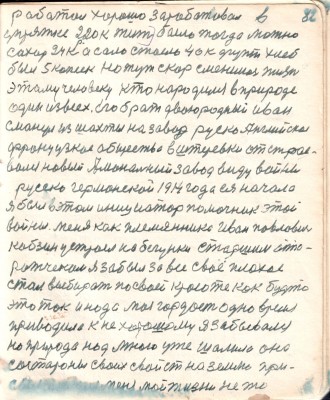 работал хорошо заработовал в 82
упряжке 2 20к жить было тогда можно
сахар 34к а сало стоело 40к фунт хлеб
был 5 копеек но тут скор сменилась жизн
этаму человеку кто народился в природе
один из всех. его брат двоюродный иван
сманул из шахты на завод руско Английское
французкое общество в штеровки отстрае-
вали новый Амоналный завод виду войны
русско германской 1914 года ея начала
я был в этом инициатор помочник этой
войны. меня как племянника иван павлович
кобзин устроил на бегунки старшим апо-
ратчиком я забыл за все своё плохое
стал выбирать посвоей красоте как будто
это так и нада моя гордост одно время
приводила к не хорошому я забывалса
но природа над мною уже шалила она
со стороны своих свойст на землю при-
меня мой жизни не то